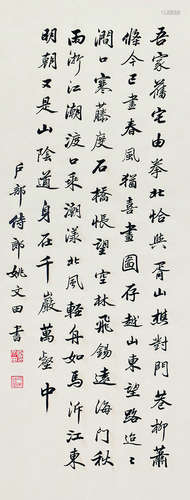 吾家舊宅由拳北恰與胥山樵對門巷柳蕭
條今已盡春風猶喜畫圖存越山東望路迢迢
澗口寒藤度石橋悵望空林飛錫遠海門秋
雨浙江潮渡口乘潮漾北風輕舟如馬泝江東
明朝又是山陰道身在千巖萬壑中
戶部侍郎姚文田書